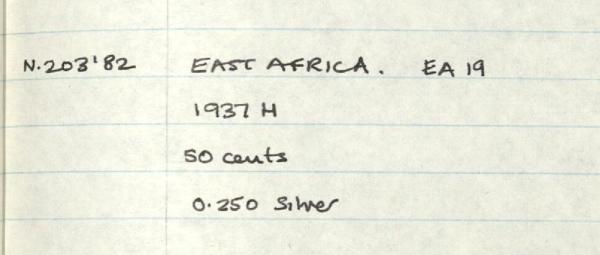 N.203'82 EAST AFRICA. EA 19
1937 H
50 cents
0.250 Silver